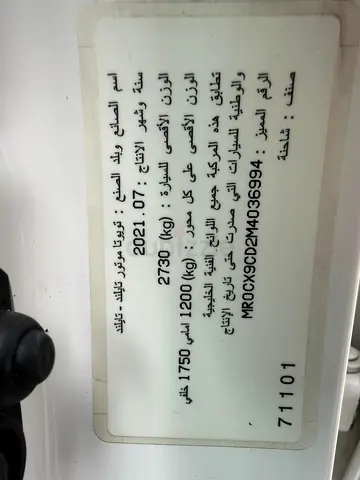 اسم الصانع وبلد الصنع : تويوتا موتور تايلند - تايلند
سنة وشهر الانتاج : 2021.07
الوزن الأقصى للسيارة : (kg) 2730
الوزن الأقصى على كل محور : (kg) 1200 امامي 1750 خلفي
تطابق هذه المركبة جميع اللوائح الفنية الخليجية
والوطنية للسيارات التي صدرت حتى تاريخ الإنتاج
الرقم المميز : MR0CX9CD2M4036994
صنف : شاحنة
71101